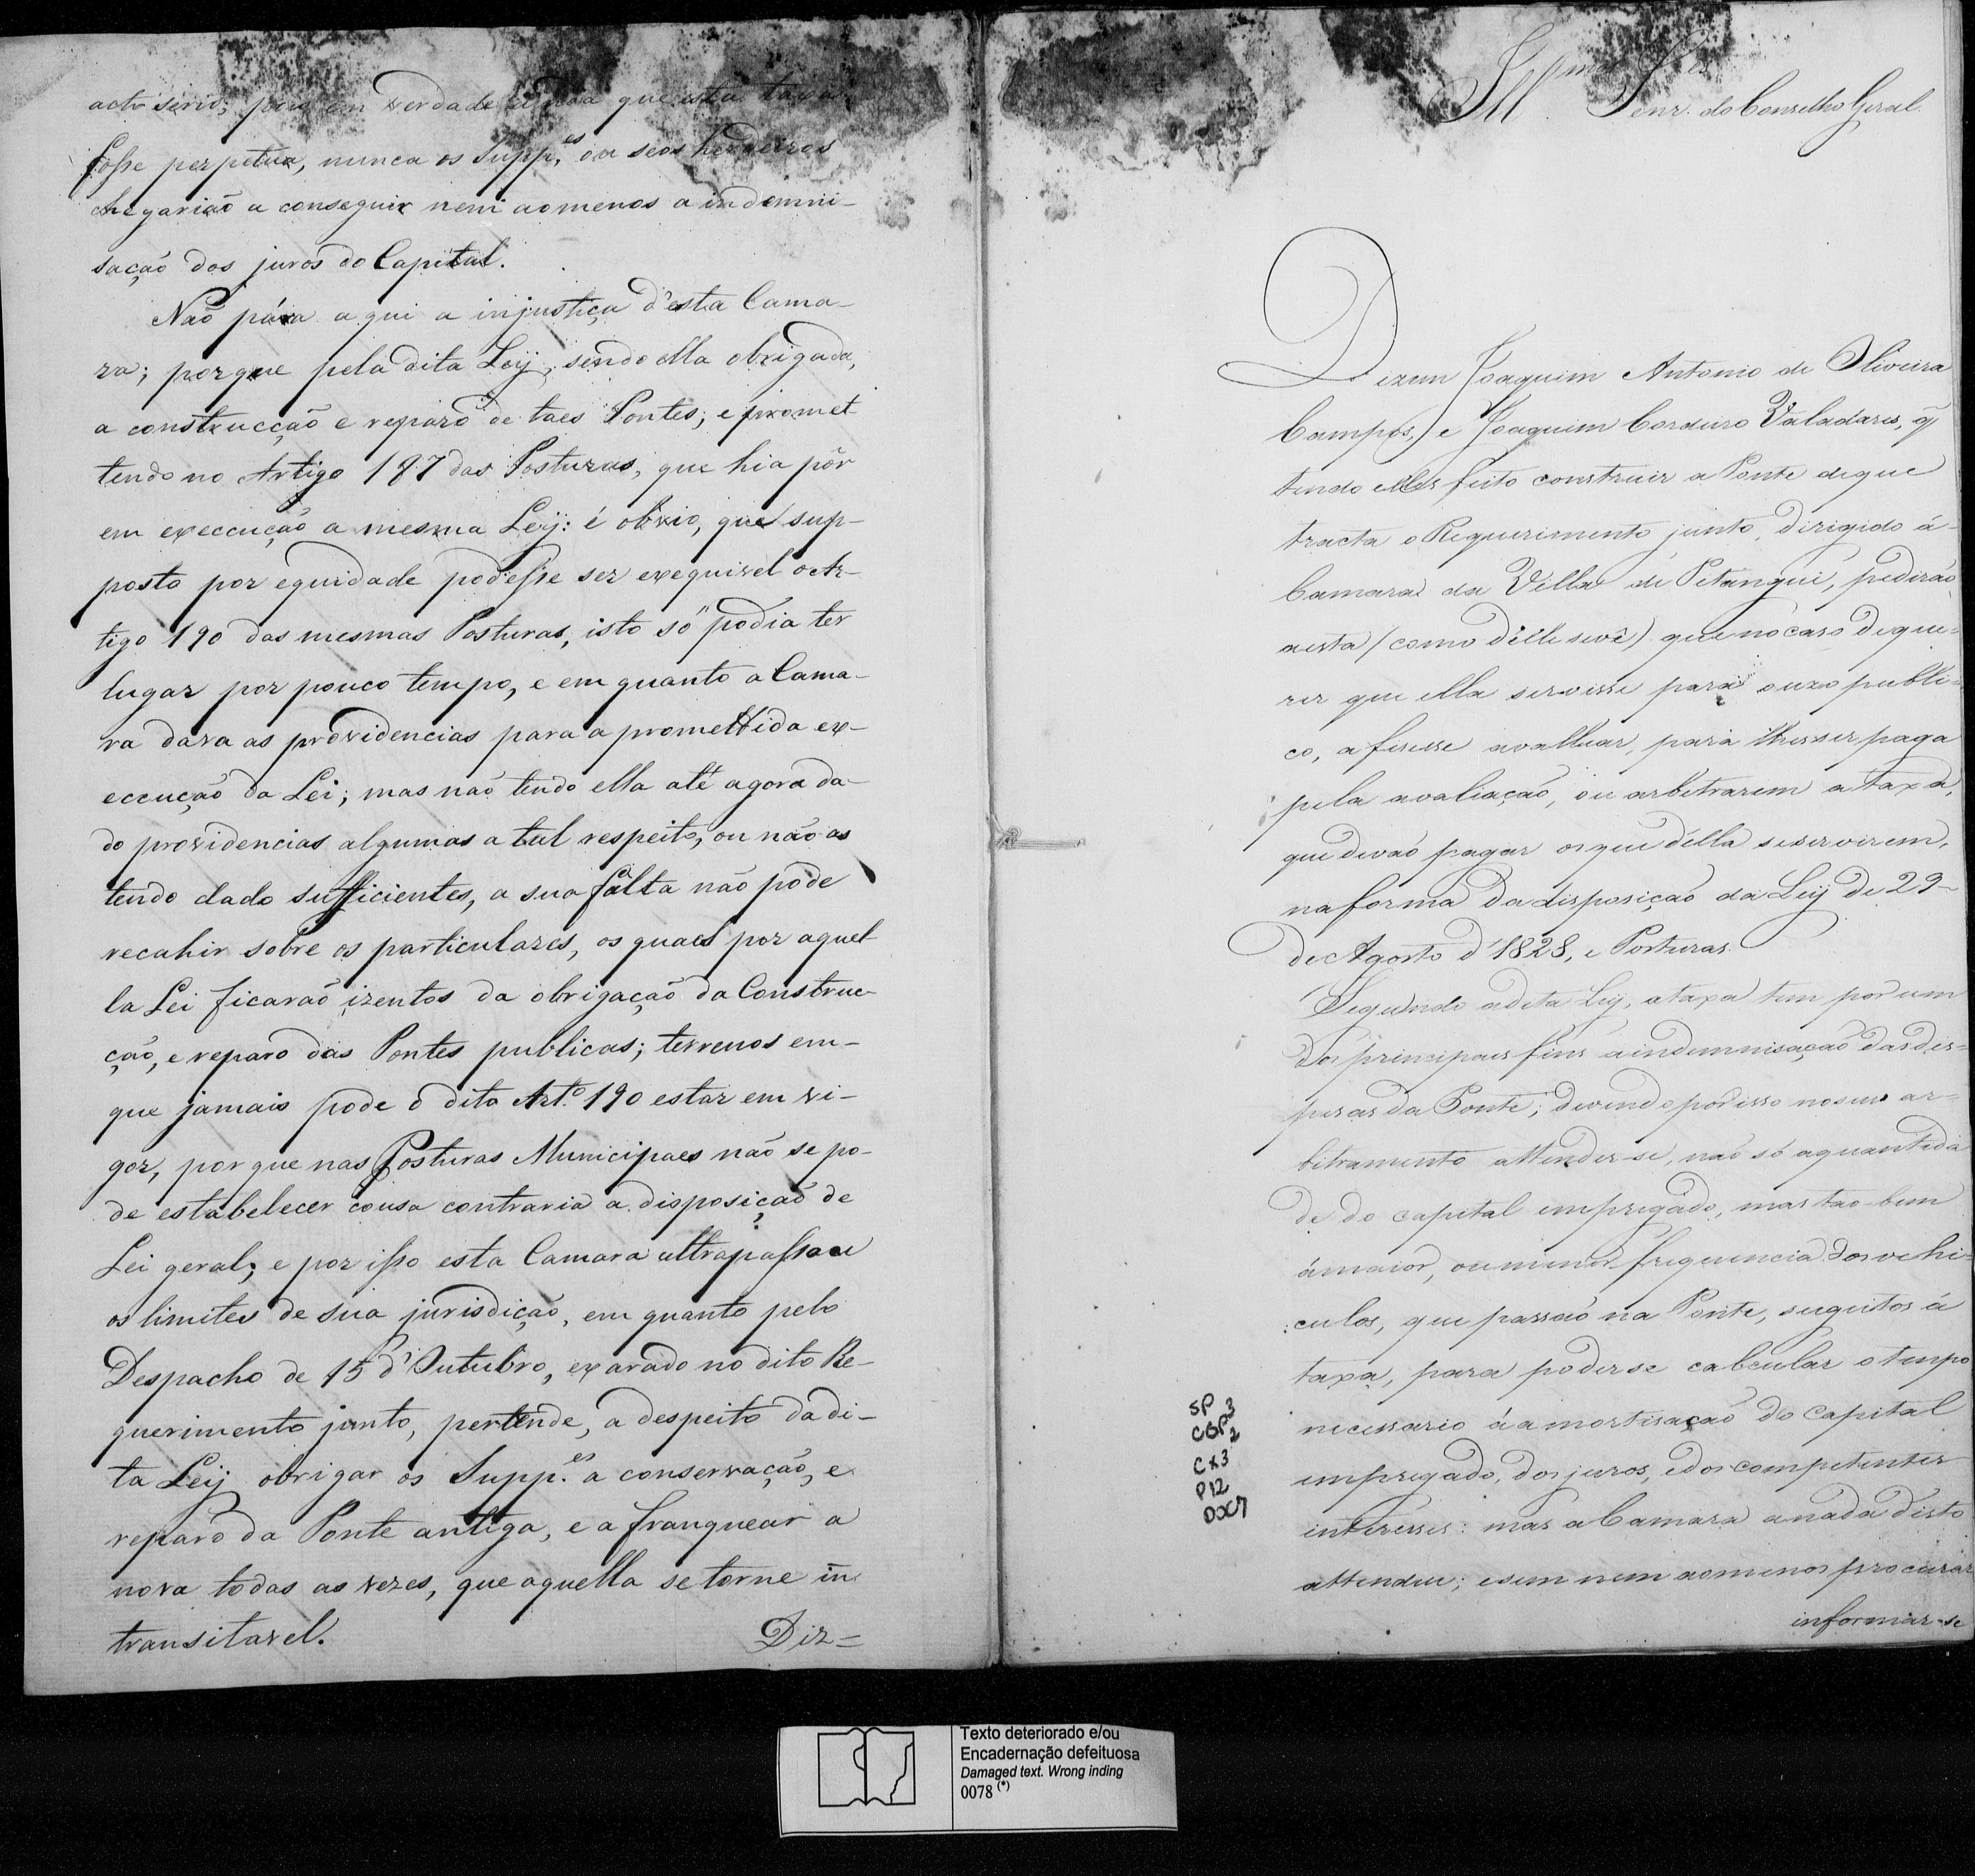 acto serio; pois em verdade ainda que esta taxa
fosse perpetua, nunca os Supp.es ou seos herdeiros
chegarião a conseguir nem ao menos a indemni-
sação dos juros do Capital.
Não pára aqui a injustiça d'esta Cama-
ra; porque pela dita Leij, sendo ella obrigada,
a construcção e reparo de taes Pontes, e promet
tendo no Artigo 187 das Posturas, que hia pôr
em execcução a mesma Leij: é obvio, que sup-
posto por equidade podesse ser exequivel o Ar-
tigo 190 das mesmas Posturas, isto só podia ter
lugar por pouco tempo, e em quanto a Cama-
ra dava as providencias para a promettida ex-
eccução da Lei; mas não tendo ella até agora da-
do providencias algumas a tal respeito, ou não as
tendo dado sufficientes, a sua falta não pode
recahir sobre os particulares, os quaes por aquel-
la Lei ficarão izentos da obrigação da Construc-
ção, e reparo das Pontes publicas; terrenos em-
que jamais pode o dito Art.o 190 estar em vi-
gor, porque nas Posturas Municipaes não se po-
de estabelecer cousa contraria a disposição de
Lei geral; e por isso esta Camara ultrapassou
os limites de sua jurisdição, em quanto pelo
Despacho de 15 d'Outubro, exarado no dito Re-
querimento junto, pertende, a despeito da di-
ta Leij obrigar os Supp.es a conservação, e
reparo da Ponte antiga, e a franquear a
nova todas as vezes, que aquella se torne in
transitavel.
Diz=
Ill.mos Senr. do Conselho Geral
Dizem Joaquim Antonio de Oliveira
Campos, e Joaquim Cordeiro Valadares, q̃
tendo elles feito construir a Ponte de que
tracta o Requerimento junto, dirigido á
Camara da Villa de Pitangui, pedirão
a esta (como d'elle se vê) que no caso de que-
rer que ella servisse para o uzo publi=
co, a fisesse avalluar, para lhes ser paga
pela avaliação, ou arbitrarem a taxa,
que devão pagar os que d'ella se servirem,
na forma da disposição da Leij de 29-
de Agosto d'1828, e Posturas.
Segundo a dita Leij, a taxa tem por um
dos principaes fins a indemnisação das des=
pesas da Ponte; devendo por isso no seu ar=
bitramento attender-se, não só a quantida
de do capital empregado, mas tão bem
á maior, ou menor frequencia dos vehi=
culos, que passão na Ponte, sugeitos á
taxa, para poder-se calcular o tempo
necessario á amortisação do Capital
empregado, dos juros, e dos competentes
interesses: mas a Camara a nada disto
attendeu; e sem nem ao menos procurar
informar-se
SP 3
CGP 2
CX3
P12
DOC7
Texto deteriorado e/ou
Encadernação defeituosa
Damaged text. Wrong inding
0078 (*)